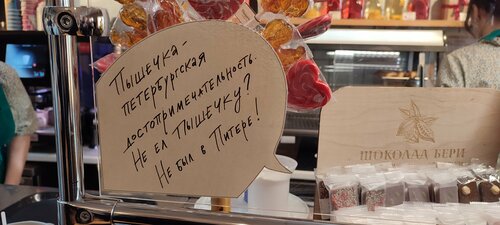 Пышечка-
петербургская
достопримечательность.
Не ел Пышечку?
Не был в Питере!
ШОКОЛАД БЕРИ